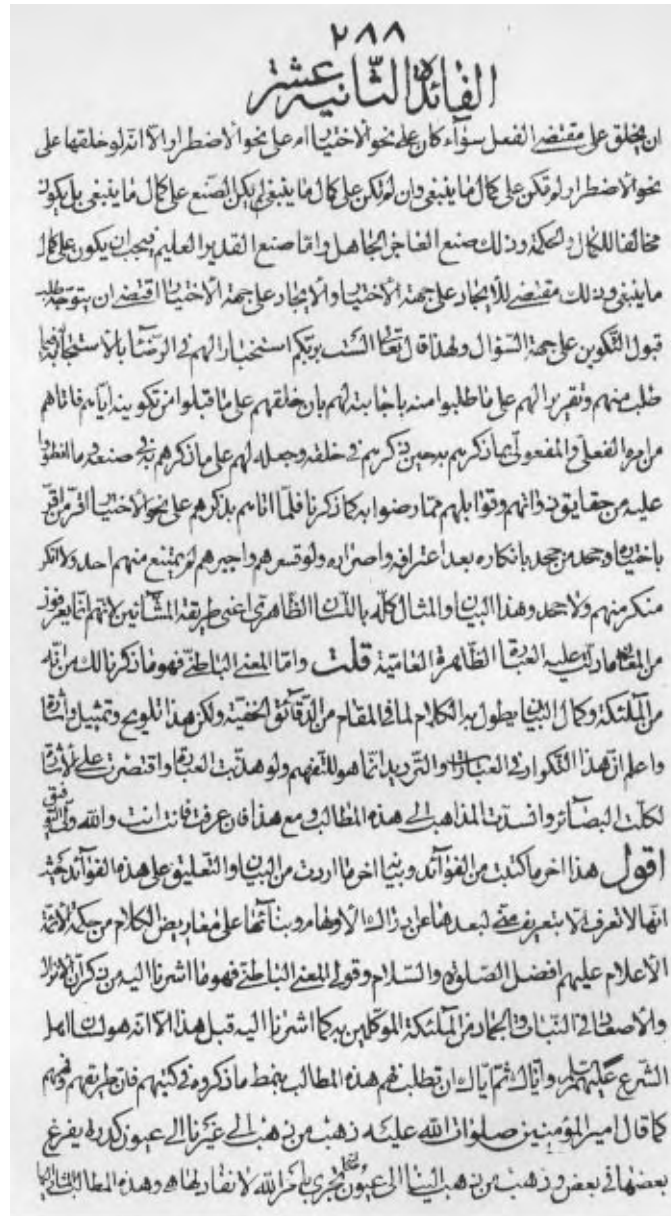 ٢٨٨
الفائدة الثانية عشر
ان يخلق على مقتضى الفعل سوآء كان على نحو الاختيار ام على نحو الاضطرار الا انه لو خلقها على
نحو الاضطرار لم تكن على كمال ما ينبغي وان لم تكن على كمال ما ينبغي لم يكن الصنع على كمال ما ينبغي بل يكون
مخالفا للكمال والحكمة وذلك صنع العاجز الجاهل واما صنع القدير العليم فيجب ان يكون على كمال
ما ينبغي وذلك مقتضى للايجاد على جهة الاختيار والايجاد على جهة الاختيار اقتضى ان يتوجه طلب
قبول التكوين على جهة السؤال ولهذا قال تعالى الست بربكم استخبارا لهم في الرضا بالاستجابة فيما
طلب منهم وتقريرا لهم على ما طلبوا منه باجابته لهم بان خلقهم على ما قبلوا من تكوينه اياهم فاتاهم
من امره الفعلي والمفعولي بما ذكرهم به حين ذكرهم في خلقه وجعله لهم على ما ذكرهم به في صنعه وما انطووا
عليه من حقايق ذواتهم وقوابلهم مما رضوا به كما ذكرنا فلما اتاهم بذكرهم على نحو الاختيار اقر من اقر
باختياره وجحد من جحد بانكاره بعد اعترافه واصراره ولو قسرهم واجبرهم لم يمتنع منهم احد ولا انكر
منكر منهم ولا جحد وهذا البيان والمثال كله باللسان الظاهري اعني طريقة المشائين لانهم انما يعرفون
من المقال ما دلت عليه العبارة الظاهرة العامية قلت واما المعنى الباطني فهو ما ذكرنا لك من انه
من الملئكة وكمال البيان يطول به الكلام لما في المقام من الدقائق الخفية ولكن هذا تلويح وتمثيل واشارة
واعلم ان هذا التكرار في العبارات والترديد انما هو للتفهيم ولو هذبت العبارة واقتصرت على الاشارة
لكلت البصائر وانسدت المذاهب الى هذه المطالب ومع هذا فان عرفت فانت انت والله ولي التوفيق
اقول هذا اخر ما كتبت من الفوآئد وبتمامها اخر ما اردت من البيان والتعليق على هذه الفوآئد حيث
انها لا تعرف الا بتعريف مني لبعدها عن ادراك الاوهام وبنائها على معاريض الكلام من حكمة الائمة
الاعلام عليهم افضل الصلوة والسلام وقولي المعنى الباطني فهو ما اشرنا اليه من ذكر ان الانزال
والاصعاق في النبات والجماد من الملئكة الموكلين به كما اشرنا اليه قبل هذا الا انه هو لسان اهل
الشرع عليهم السلام واياك ثم اياك ان تطلب فهم هذه المطالب بنمط ما ذكروه في كتبهم فان طريقهم وفهمهم
كما قال امير المؤمنين صلوات الله عليه ذهب من ذهب الى غيرنا الى عيون كدرة يفرغ
بعضها في بعض وذهب من ذهب الينا الى عيون صافية تجري بامر الله لا نفاد لها وهذه المطالب